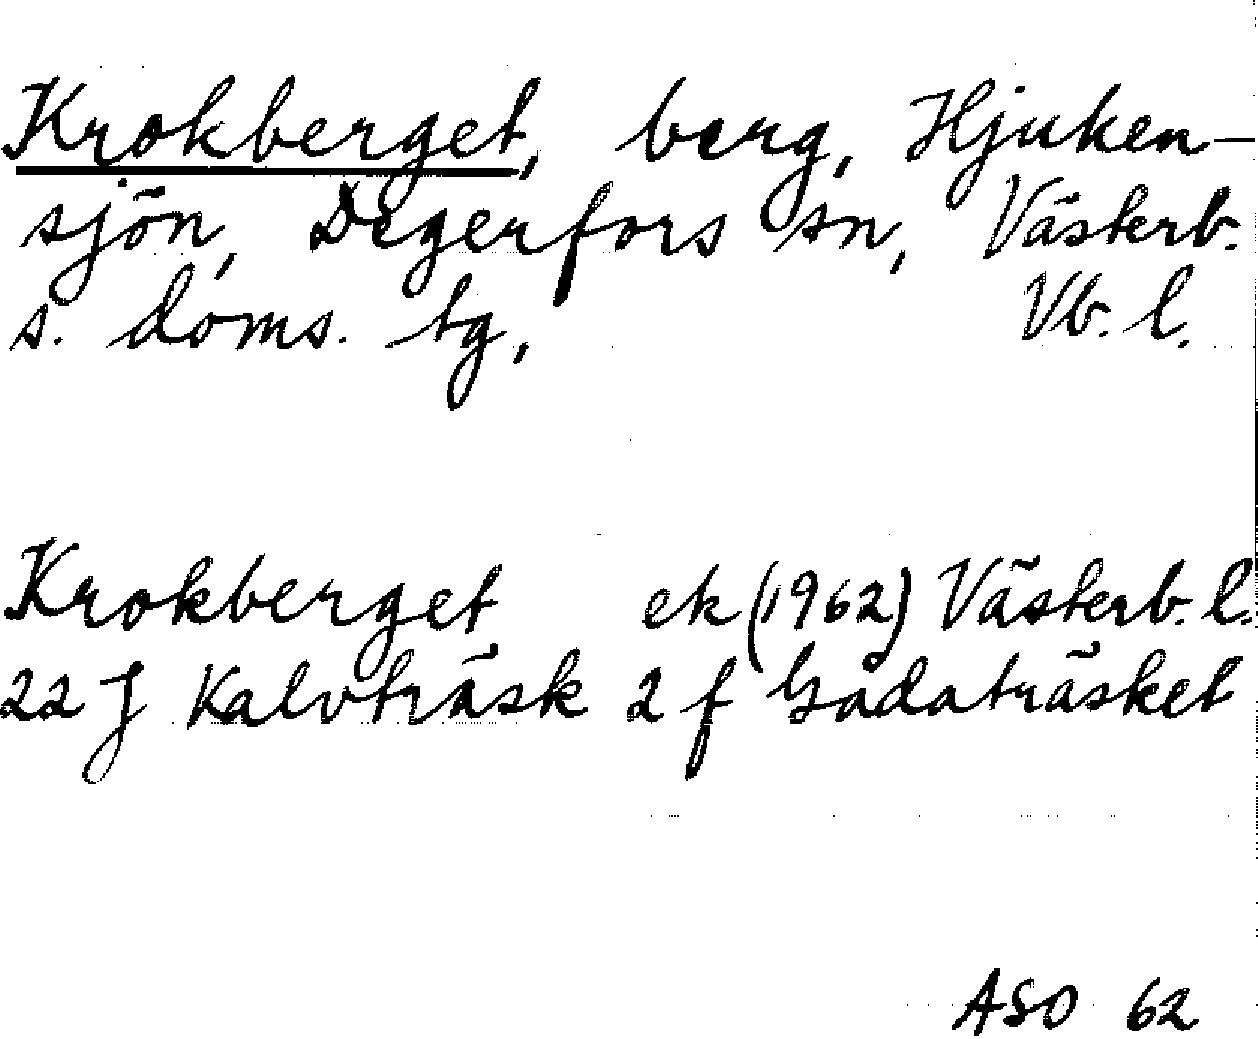 Krokberget, berg, Hjuken-
sjön, Degerfors sn, Västerb.
s. doms. tg, Vb. l.
Krokberget ek (1962) Västerb. l.
22 J Kalvträsk 2 f Gådaträsket
ASO 62